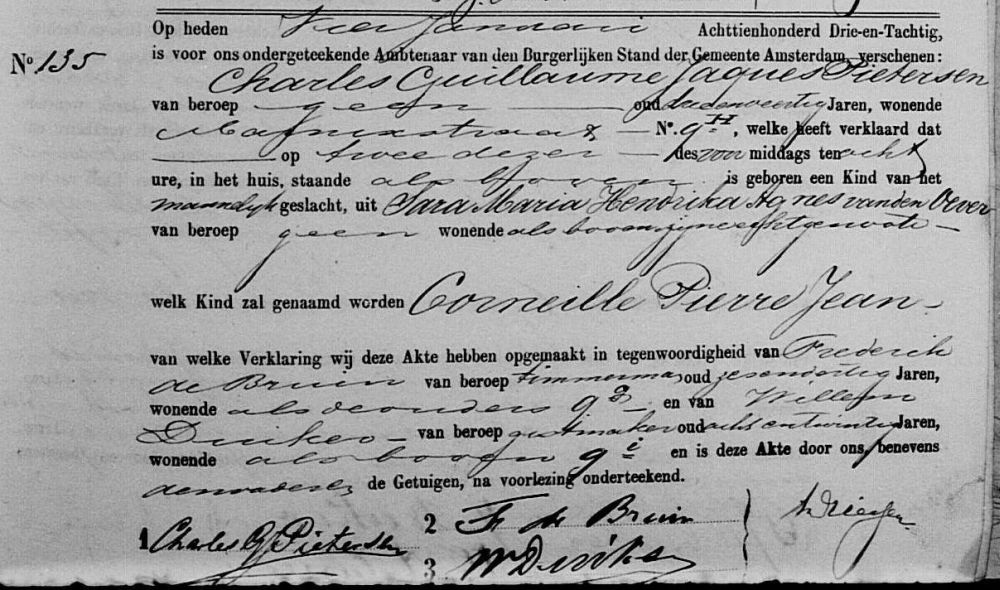 Op heden Vier Januari Achttienhonderd Drie-en-Tachtig,
No. 135 is voor ons ondergeteekende Ambtenaar van den Burgerlijken Stand der Gemeente Amsterdam, verschenen:
Charles Guillaume Jaques Pietersen
van beroep geen oud drieënveertig Jaren, wonende
Marnixstraat No. 9 H, welke heeft verklaard dat
op twee dezer des voor middags ten acht
ure, in het huis, staande als boven is geboren een Kind van het
mannelijk geslacht, uit Sara Maria Hendrika Agnes van den Oever
van beroep geen wonende als boven zijne echtgenoote
welk Kind zal genaamd worden Corneille Pierre Jean
van welke Verklaring wij deze Akte hebben opgemaakt in tegenwoordigheid van Frederik
de Bruin van beroep timmerman, oud Jaren,
wonende als de ouders 9 en van Willem
van beroep oud acht en twintig Jaren,
wonende als boven 9 en is deze Akte door ons, benevens
den vader en de Getuigen, na voorlezing onderteekend.
1 Charles G J Pietersen 2 F. de Bruin
3